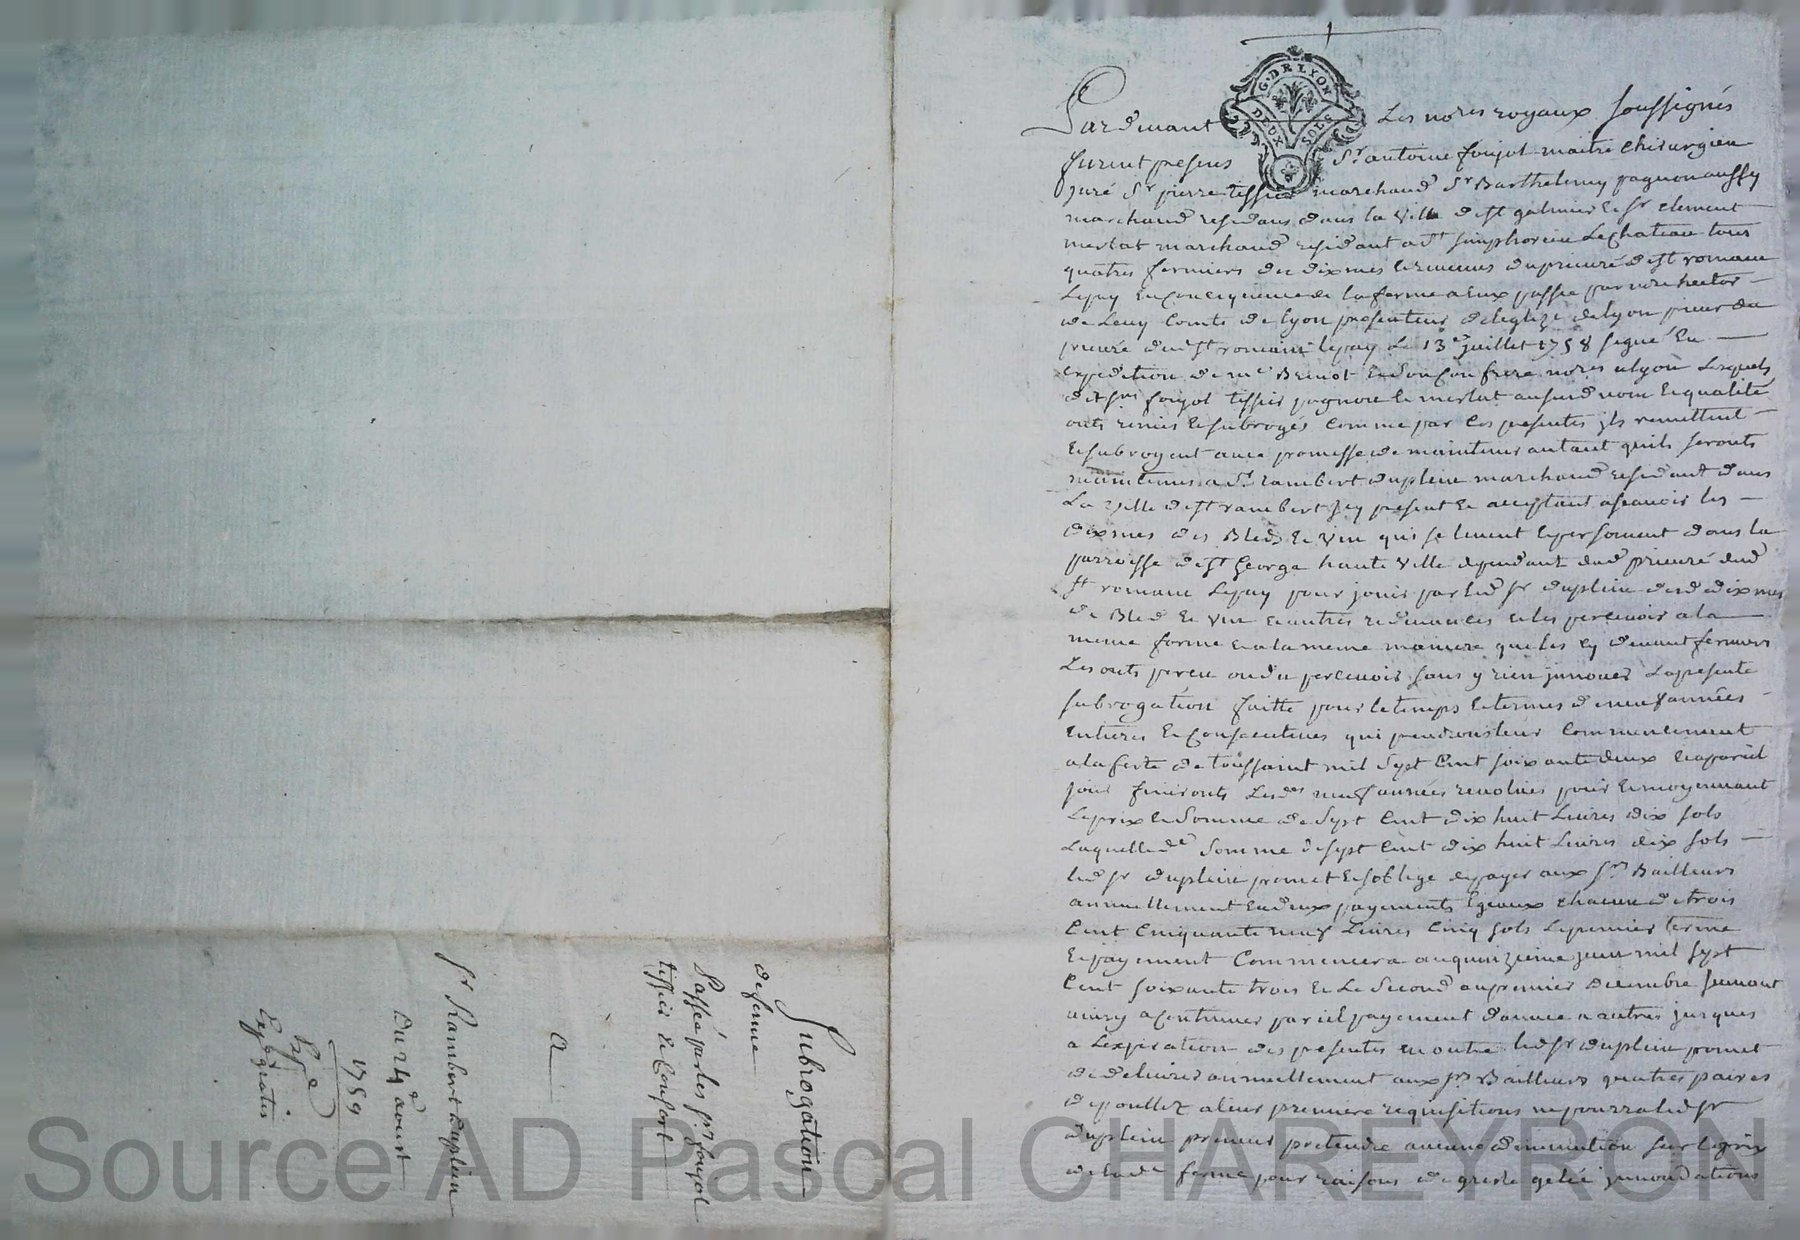 Subrogation
de ferme
Passée par les Srs foujol
tissier & Consort
a
Sr Rambert duplein
Du 24e aoust
1759
Expe
Expe gratis
G. DE LYON
DEUX SOLS
Pardevant Les nores royaux soussignés
furent presens Sr antoine foujol maitre chirurgien
juré Sr pierre tissier marchand Sr Barthelemy pagnon aussy
marchand residans dans la ville de st galmier & sr clement
merlat marchand residant a St simphorien Le chateau tous
quatres fermiers des dixmes & revenus du prieuré de st romain
Lepuy en consequence de la ferme a eux passée par hector
de Levy Comte de lyon de leglize de lyon prieur du
prieuré dud st romain lepuy Le 13e juillet 1758 signé En
expedition de me Benot & son Confrere nores a lyon Lesquels
dits srs foujol tissier pagnon & merlat ausurd nom & qualité
onts remis & subrogés comme par les presentes ils remettent
& subrogent avec promesse de maintenir autant quils seronts
maintenus a Sr rambert duplein marchand residant dans
La ville de st rambert icy present & acceptant ascavoir les
dixmes des Bleds & vin qui se levent & persoivent dans la
parroisse de st George haute ville dependant dud prieuré dud
st romain Lepuy pour jouir par led sr duplein desd dixmes
de Bled & vin & autres redevances & les percevoir a la
meme forme & a la meme maniere que les cy devant fermiers
Les onts perçu ou du percevoir sans y rien innover La presente
subrogation faitte pour le temps & termes de neuf années
entieres & consecutives qui prendronts leur commencement
a la feste de toussaint mil sept cent soixante deux & a pareil
jour finironts Lesdes neuf années revolues pour & moyennant
Le prix & somme de sept cent dix huit Livres dix sols
Laquelle de somme de sept cent dix huit Livres dix sols
led sr duplein promet & soblige de payer aux srs Bailleurs
annuellement en deux payements egeaux chacun de trois
cent cinquante neuf Livres cinq sols Le premier terme
& payement Commencera au quinzieme juin mil sept
cent soixante trois & Le second au premier decembre suivant
ainsy a continuer par iel payement dannee a autres jusques
a Lexpiration des presentes en outre led sr duplein promet
de delivrer annuellement aux srs Bailleurs quatres paires
de poullez a leur premiere requisitions ne pourra led sr
duplein preneur pretendre aucune diminution sur le prix
de lade ferme pour raisons de gresle gelée innondations
Source AD Pascal CHAREYRON